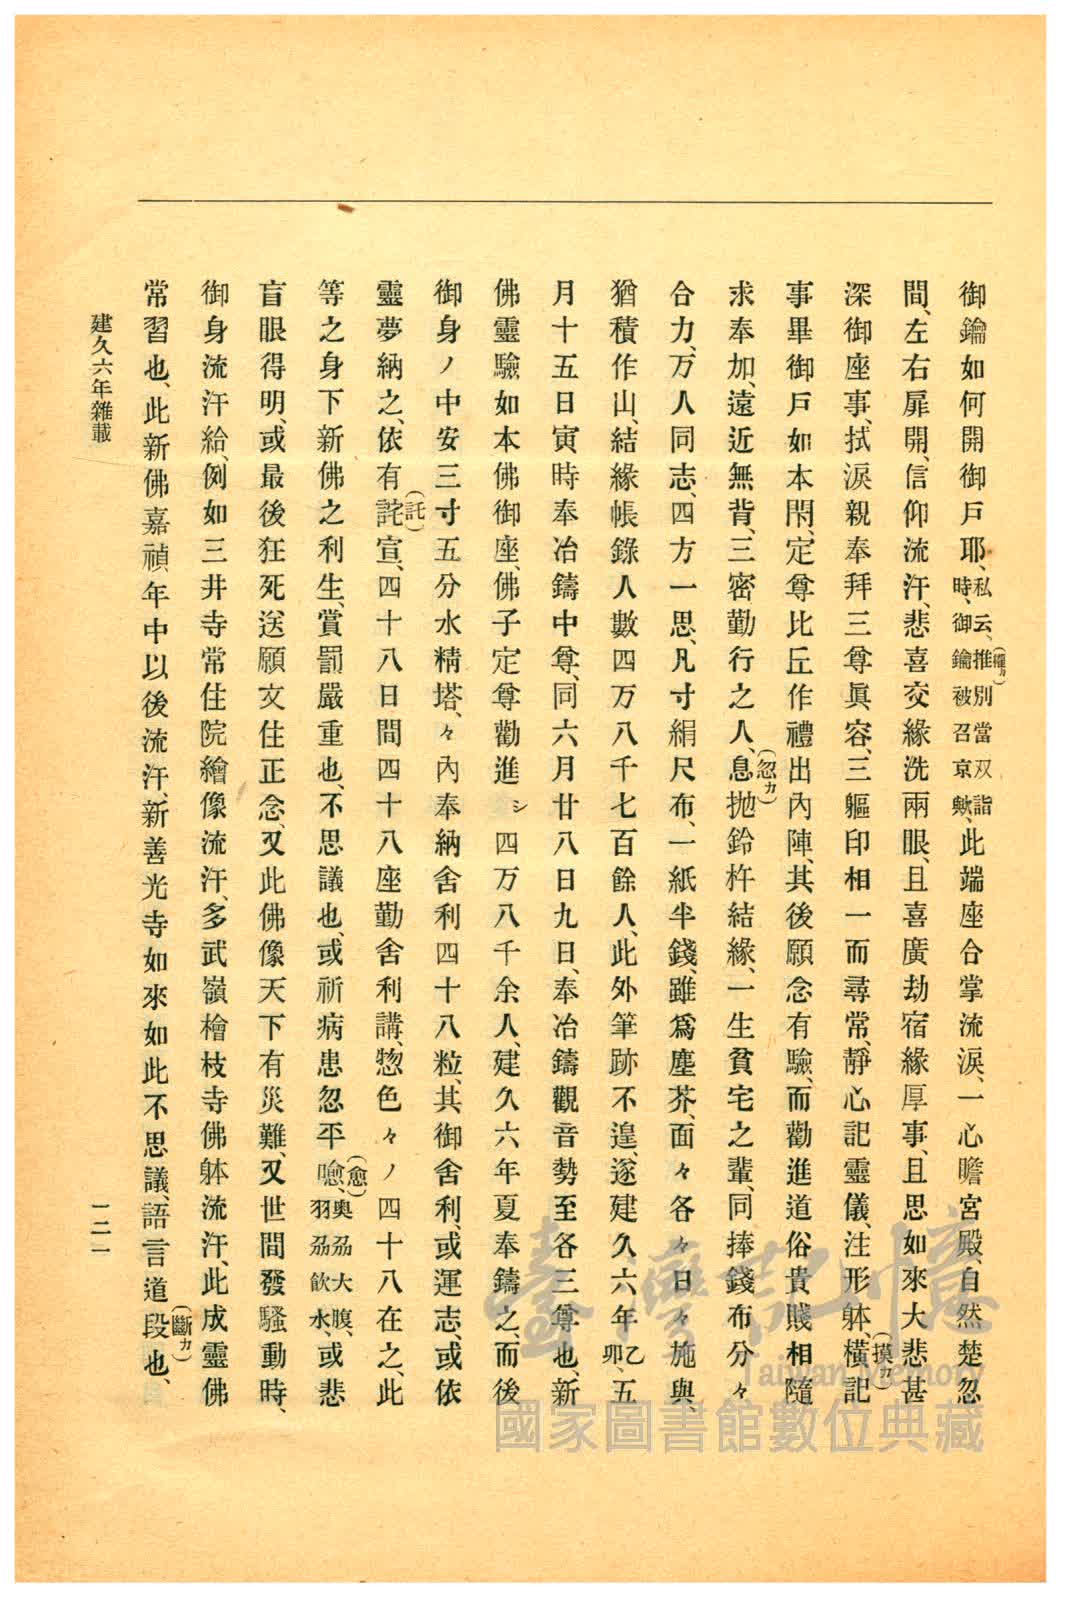 御鑰如何開御戶耶、私云、推(權カ)別當双詣時、御鑰被召京歟、此端座合掌流淚、一心瞻宮殿、自然楚忽
間、左右扉開、信仰流汗、悲喜交緣洗兩眼、且喜廣劫宿緣厚事、且思如來大悲甚
深御座事、拭淚親奉拜三尊眞容、三軀印相一而尋常、靜心記靈儀、注形躰、橫(摸カ)記
事畢御戶如本閇、定尊比丘作禮出內陣、其後願念有驗、而勸進道俗貴賤相隨
求奉加、遠近無背、三密勤行之人、息(忽カ)抛鈴杵結緣、一生貧宅之輩、同捧錢布分々
合力、万人同志、四方一思、凡寸絹尺布、一紙半錢、雖爲塵芥、面々各々日々施與、
猶積作山、結緣帳錄人數四万八千七百餘人、此外筆跡不遑、遂建久六年乙卯、五
月十五日寅、時奉冶鑄中尊、同六月廿八日九日、奉冶鑄觀音勢至各三尊也、新
佛靈驗如本佛御座、佛子定尊勸進シ四万八千余人、建久六年夏奉鑄之、而後
御身ノ中安三寸五分水精塔、々內奉納舍利四十八粒、其御舍利、或運志、或依
靈夢納之、依有詫(託)宣、四十八日間四十八座勤舍利講、惣色々ノ四十八在之、此
等之身下新佛之利生、賞罰嚴重也、不思議也、或祈病患忽平喩(愈)、奧劦大腹、羽劦飮水、或悲
盲眼得明、或最後狂死送願文住正念、又此佛像天下有災難、又世間發騷動時、
御身流汗給、例如三井寺常住院繪像流汗、多武嶺檜枝寺佛躰流汗、此成靈佛
常習也、此新佛嘉禎年中以後流汗、新善光寺如來如此不思議、語言道段(斷カ)也、
建久六年雜載
一二一
臺灣記憶
Taiwan Memory
國家圖書館數位典藏